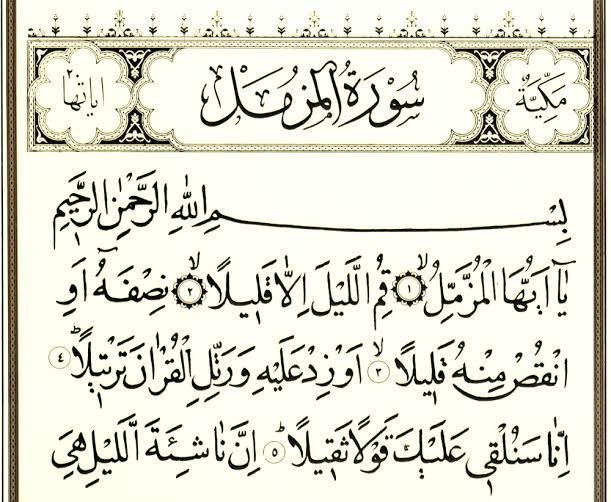 مكية سورة المزمل اياتها ٢٠
بِسْمِ اللهِ الرَّحْمٰنِ الرَّحِيمِ
يَٓا اَيُّهَا الْمُزَّمِّلُ ﴿١﴾ قُمِ الَّيْلَ اِلَّا قَلِيلًا ﴿٢﴾ نِصْفَهُٓ اَوِ
انْقُصْ مِنْهُ قَلِيلًا ﴿٣﴾ اَوْ زِدْ عَلَيْهِ وَرَتِّلِ الْقُرْاٰنَ تَرْتِيلًا ﴿٤﴾
اِنَّا سَنُلْقِي عَلَيْكَ قَوْلًا ثَقِيلًا ﴿٥﴾ اِنَّ نَاشِئَةَ الَّيْلِ هِيَ